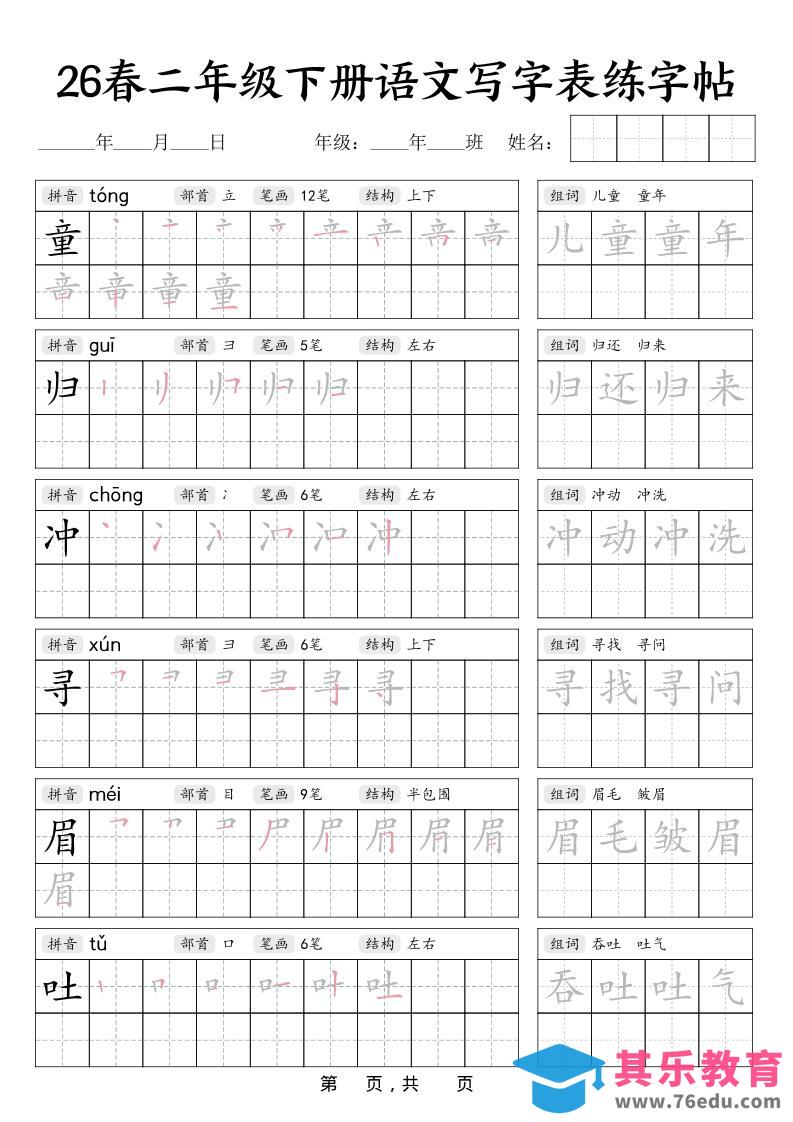 26春二年级下册语文写字表练字帖
______年____月____日 年级：____年____班 姓名：
拼音 tóng 部首 立 笔画 12笔 结构 上下 组词 儿童 童年
童 儿童童年
童
拼音 guī 部首 彐 笔画 5笔 结构 左右 组词 归还 归来
归 归还归来
拼音 chōng 部首 冫 笔画 6笔 结构 左右 组词 冲动 冲洗
冲 冲动冲洗
拼音 xún 部首 彐 笔画 6笔 结构 上下 组词 寻找 寻问
寻 寻 寻找寻问
拼音 méi 部首 目 笔画 9笔 结构 半包围 组词 眉毛 皱眉
眉 眉毛皱眉
眉
拼音 tǔ 部首 口 笔画 6笔 结构 左右 组词 吞吐 吐气
吐 吐 吞吐吐气
第 页，共 页
其乐教育
www.76edu.com